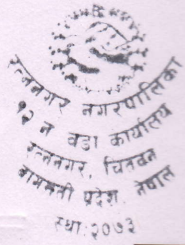 रत्ननगर नगरपालिका
१२ न वडा कार्यालय
रत्ननगर, चितवन
बागमती प्रदेश, नेपाल
स्था:२०७३